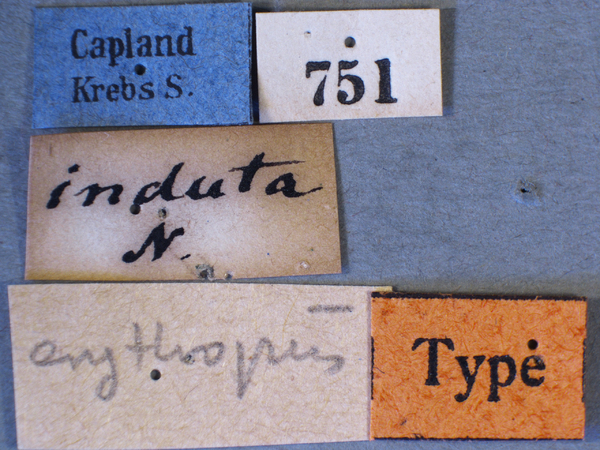 Capland
Krebs S.
751
induta
N.
erythropus
Type